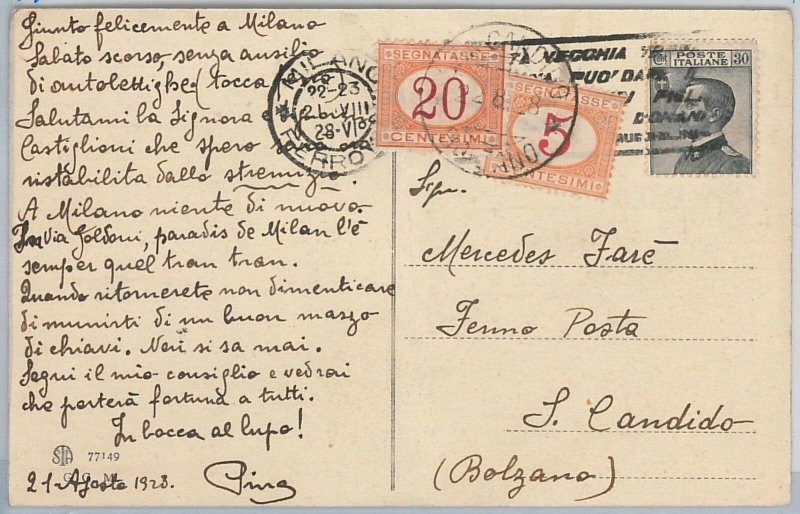 Giunto felicemente a Milano
Sabato scorso, senza ausilio
di autolettighe (tocca
Salutami la Signora e
Castiglioni che spero
ristabilita dallo
A Milano niente di nuovo.
In Via Goldoni, paradis de Milan l'è
semper quel tran tran.
Quando ritornerete non dimenticare
di munirti di un buon mazzo
di chiavi. Non si sa mai.
Segui il mio consiglio e vedrai
che porterà fortuna a tutti.
In bocca al lupo!
21 Agosto 1928.
STA 77149
G. G. M.
MILANO
22-23
VIII
28-VI
FERROVIA
SEGNATASSE
20
CENTESIMI
SEGNATASSE
5
CENTESIMI
VECCHIA
PUO' DARE IL
POSTE ITALIANE
Ct 30
Sign.
Mercedes Farè
Fermo Posta
S. Candido
(Bolzano)